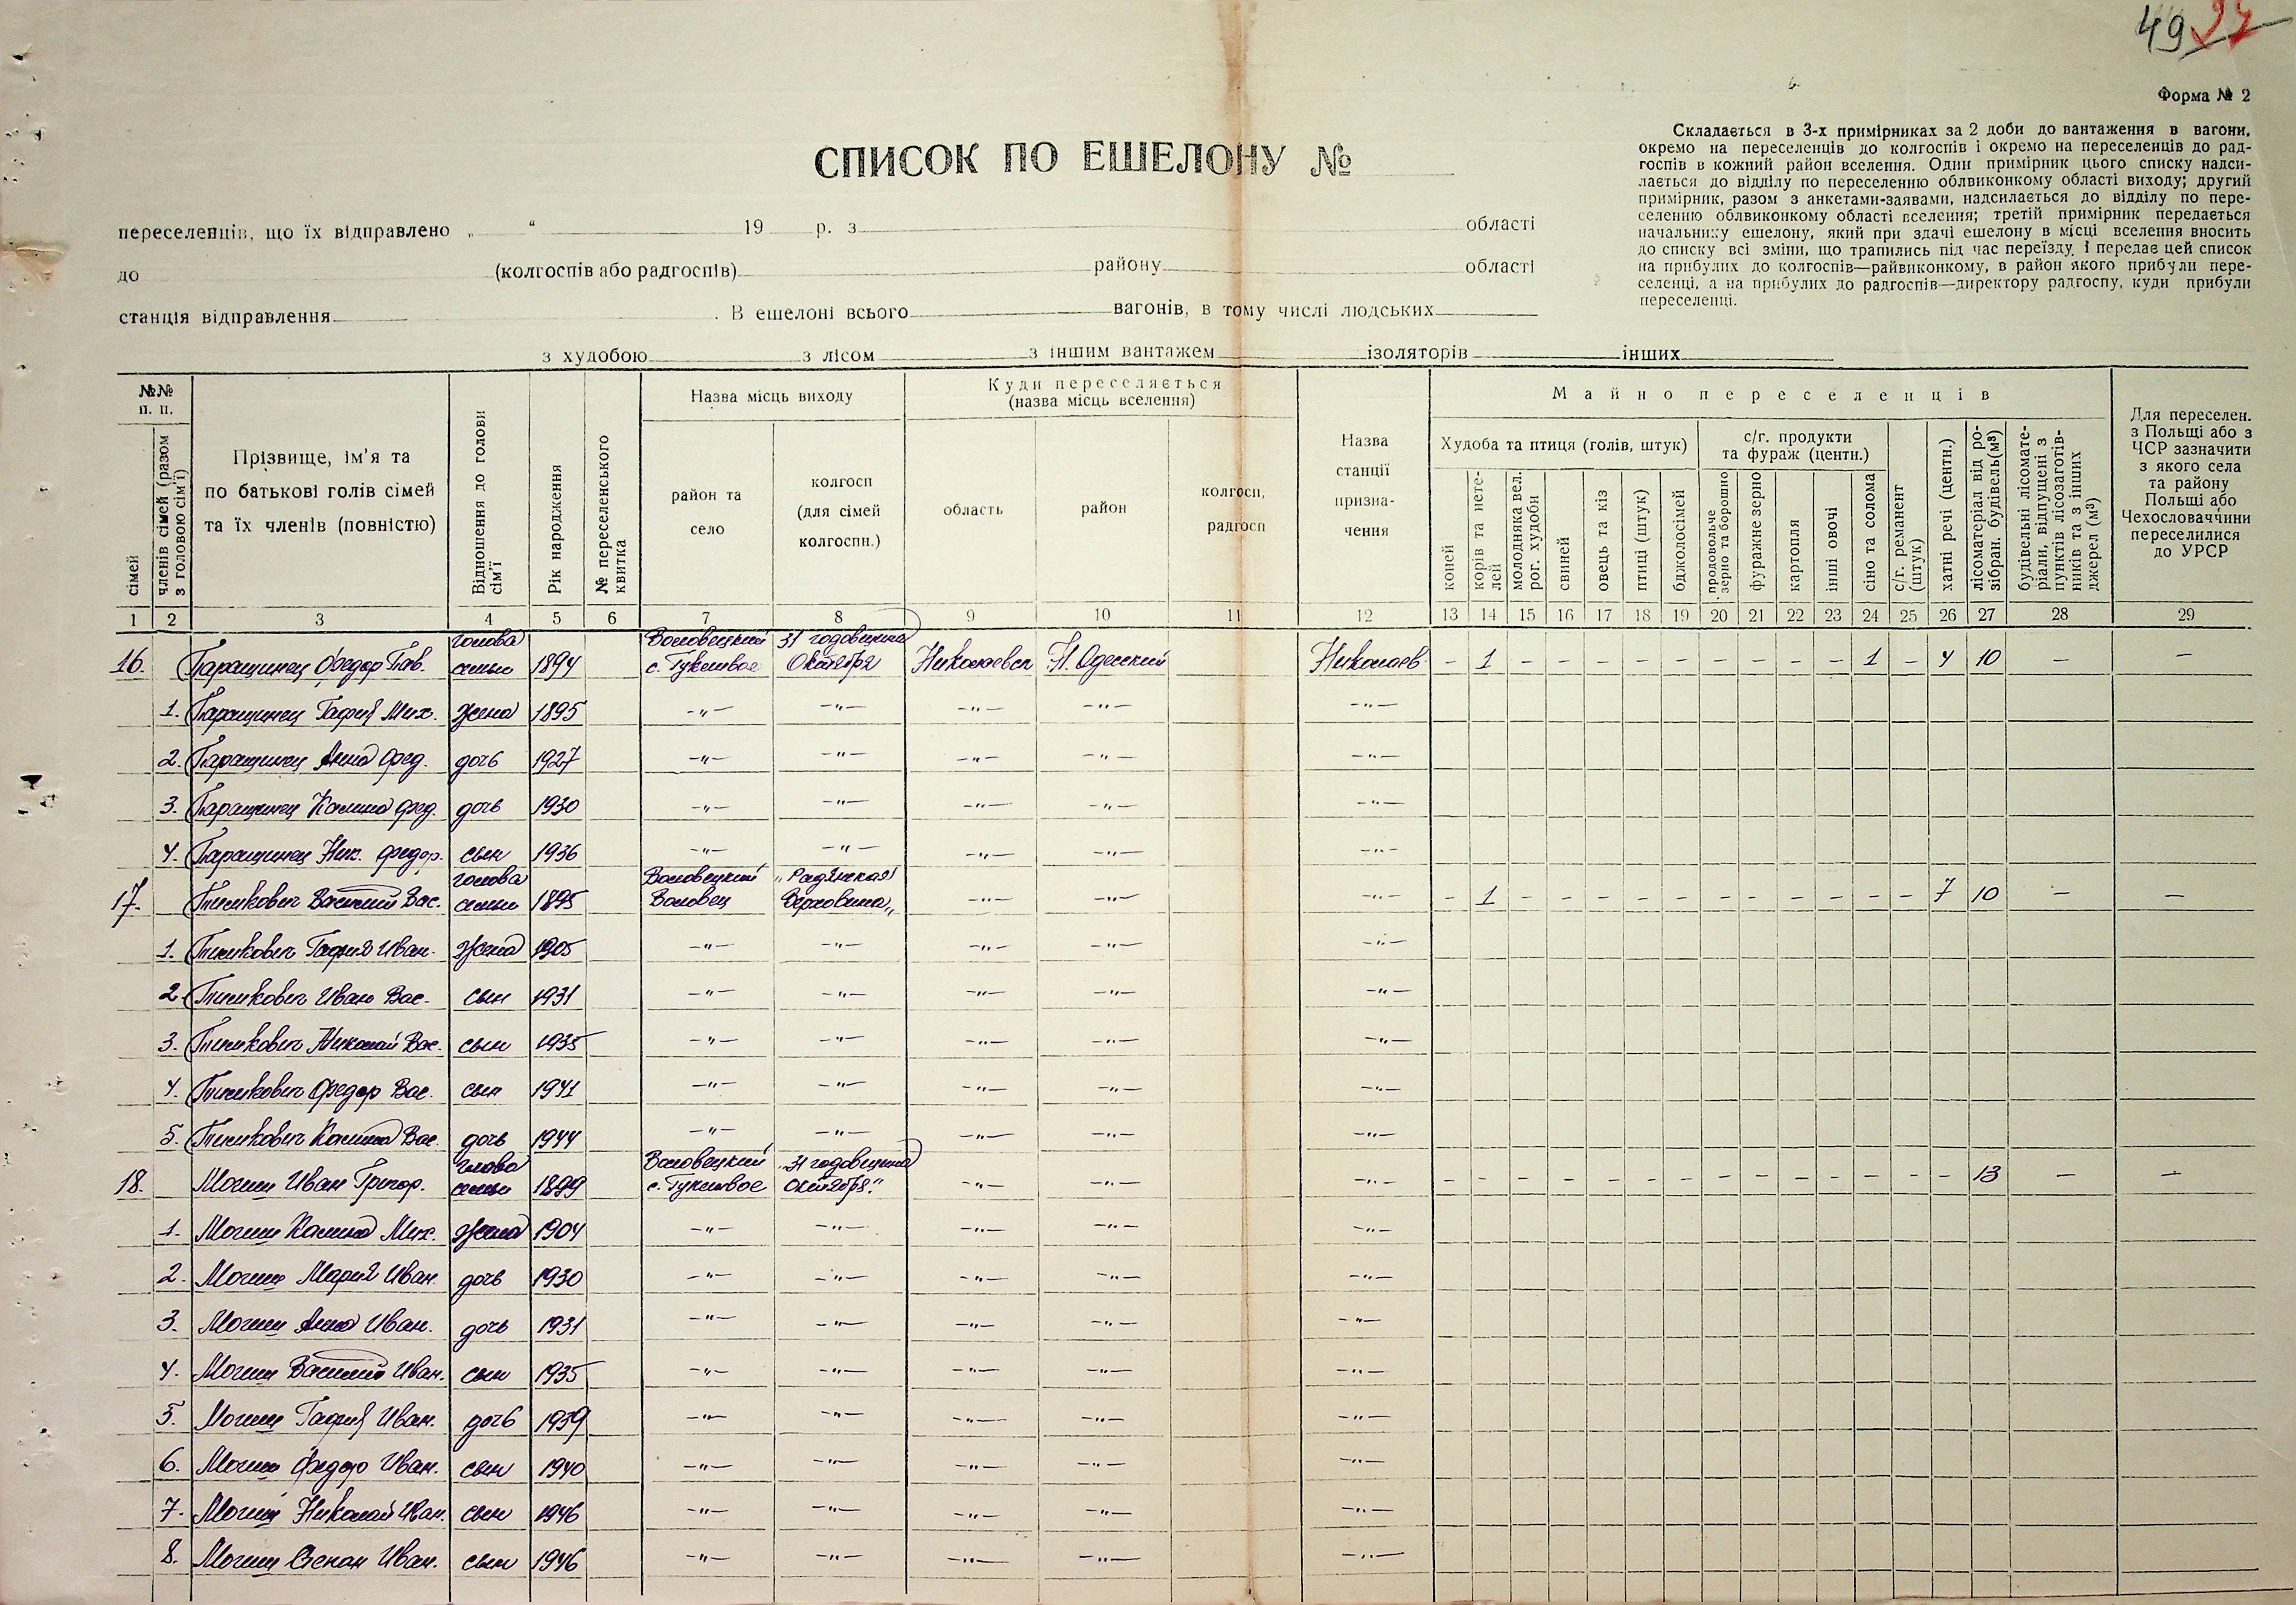 49 97
Форма № 2
Складається в 3-х примірниках за 2 доби до вантаження в вагони,
окремо на переселенців до колгоспів і окремо на переселенців до рад-
госпів в кожний район вселення. Один примірник цього списку надси-
лається до відділу по переселенню облвиконкому області виходу; другий
примірник, разом з анкетами-заявами, надсилається до відділу по пере-
селенню облвиконкому області вселення; третій примірник передається
начальнику ешелону, який при здачі ешелону в місці вселення вносить
до списку всі зміни, що трапились під час переїзду, і передає цей список
на прибулих до колгоспів—райвиконкому, в район якого прибули пере-
селенці, а на прибулих до радгоспів—директору радгоспу, куди прибули
переселенці.
СПИСОК ПО ЕШЕЛОНУ №
переселенців, що їх відправлено „ “ 19 р. з області
до (колгоспів або радгоспів) району області
станція відправлення . В ешелоні всього вагонів, в тому числі людських
з худобою з лісом з іншим вантажем ізоляторів інших
№№ п. п.
сімей
членів сімей (разом з головою сім'ї)
Прізвище, ім'я та
по батькові голів сімей
та їх членів (повністю)
Відношення до голови сім'ї
Рік народження
№ переселенського квитка
Назва місць виходу
район та село
колгосп (для сімей колгоспн.)
Куди переселяється
(назва місць вселення)
область
район
колгосп, радгосп
Назва станції призна-чення
Майно переселенців
Худоба та птиця (голів, штук)
коней
корів та нете-лей
молодняка вел. рог. худоби
свиней
овець та кіз
птиці (штук)
бджолосімей
с/г. продукти та фураж (центн.)
продовольче зерно та борошно
фуражне зерно
картопля
інші овочі
сіно та солома
с/г. реманент (штук)
хатні речі (центн.)
лісоматеріал від ро-зібран. будівель (м³)
будівельні лісомате-ріали, відпущені з пунктів лісозаготів-ників та з інших джерел (м³)
Для переселен. з Польщі або з ЧСР зазначити з якого села та району Польщі або Чехословаччини переселилися до УРСР
1 2 3 4 5 6 7 8 9 10 11 12 13 14 15 16 17 18 19 20 21 22 23 24 25 26 27 28 29
16. Паращинец Федор Пав. голова семьи 1894 Воловецкий 31 годовщина Октября Николаевск Н. Одесский Николаев - 1 - - - - - - - - - 1 - 4 10 - -
1. Паращинец Гафия Мих. жена 1895 -"- -"- -"- -"- -"-
2. Паращинец Анна Фед. дочь 1927 -"- -"- -"- -"- -"-
3. Паращинец Калина Фед. дочь 1930 -"- -"- -"- -"- -"-
4. Паращинец Ник. Федор. сын 1936 -"- -"- -"- -"- -"-
17. Василий Вас. голова семьи 1895 Воловецкий Воловец „Радянская Верховина„ -"- -"- -"- - 1 - - - - - - - - - - - 7 10 - -
1. Гафия Иван. жена 1905 -"- -"- -"- -"- -"-
2. Иван Вас. сын 1931 -"- -"- -"- -"- -"-
3. Николай Вас. сын 1935 -"- -"- -"- -"- -"-
4. Федор Вас. сын 1941 -"- -"- -"- -"- -"-
5. Калина Вас. дочь 1944 -"- -"- -"- -"- -"-
18. Иван Григор. голова семьи 1899 Воловецкий „31 годовщина Октября." -"- -"- -"- - - - - - - - - - - - - - - 13 - -
1. Калина Мих. жена 1904 -"- -"- -"- -"- -"-
2. Мария Иван. дочь 1930 -"- -"- -"- -"- -"-
3. Анна Иван. дочь 1931 -"- -"- -"- -"- -"-
4. Василий Иван. сын 1935 -"- -"- -"- -"- -"-
5. Гафия Иван. дочь 1939 -"- -"- -"- -"- -"-
6. Федор Иван. сын 1940 -"- -"- -"- -"- -"-
7. Николай Иван. сын 1946 -"- -"- -"- -"- -"-
8. Иван. сын 1946 -"- -"- -"- -"- -"-